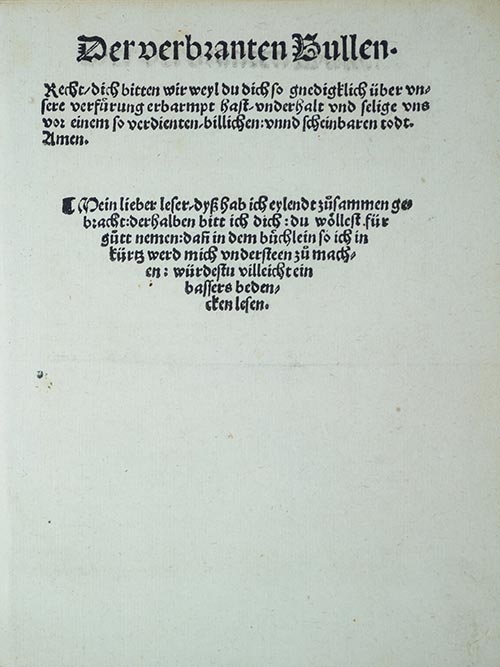 Der verbranten Bullen.
Recht/dich bitten wir weyl du dich so gnedigklich über vn⸗
sere verfürung erbarmpt hast/vnderhalt vnd selige vns
vor einem so verdienten/billichen:vnnd scheinbaren todt.
Amen.
¶ Mein lieber leser/dyß hab ich eylendt zůsammen ge
bracht:derhalben bitt ich dich:du wöllest für
gůtt nemen:dañ in dem bůchlein so ich in
kürtz werd mich vndersteen zů mach⸗
en: würdestu villeicht ein
bassers beden⸗
cken lesen.